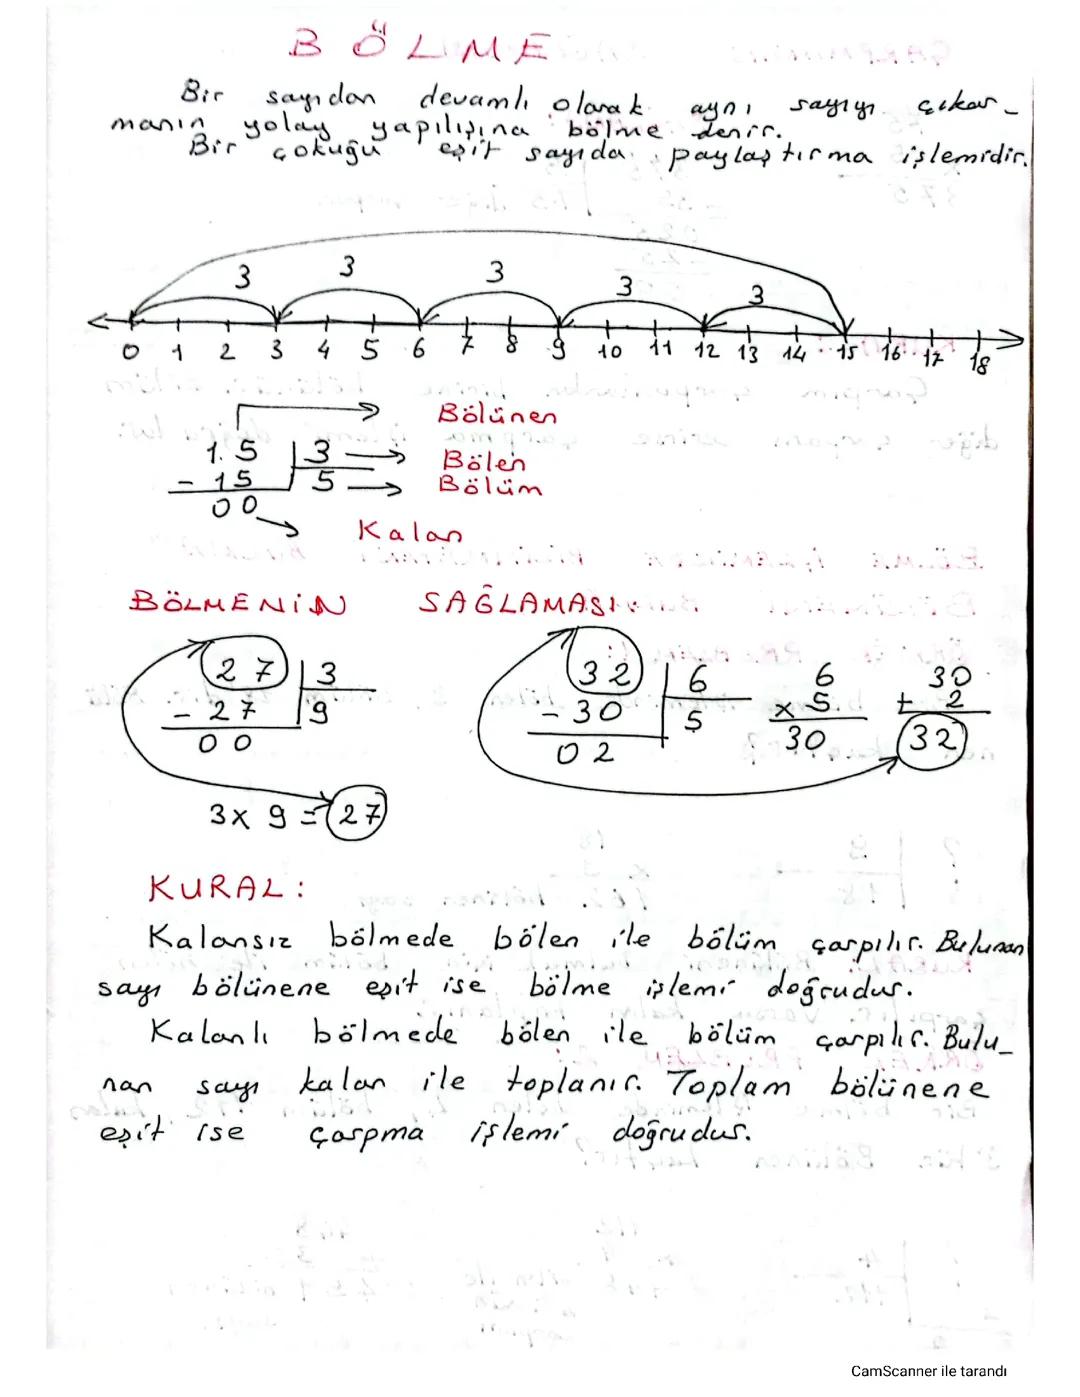 BÖLME
Bir sayıdan devamlı olarak aynı sayıyı çıkar_
manın yolay yapılışına bölme denir.
Bir çokuğu eşit sayıda paylaştırma işlemidir.
3 3 3 3 3
0 1 2 3 4 5 6 7 8 9 10 11 12 13 14 15 16 17 18
Bölünen
15 3 Bölen
- 15 5 Bölüm
00
Kalan
BÖLMENİN SAĞLAMASI:
27 3 32 6 6 30
- 27 9 - 30 5 x 5 + 2
00 02 30 32
3 x 9 = 27
KURAL:
Kalansız bölmede bölen ile bölüm çarpılır. Bulunan
sayı bölünene eşit ise bölme işlemi doğrudur.
Kalanlı bölmede bölen ile bölüm çarpılır. Bulu_
nan sayı kalan ile toplanır. Toplam bölünene
eşit ise çarpma işlemi doğrudur.
CamScanner ile tarandı